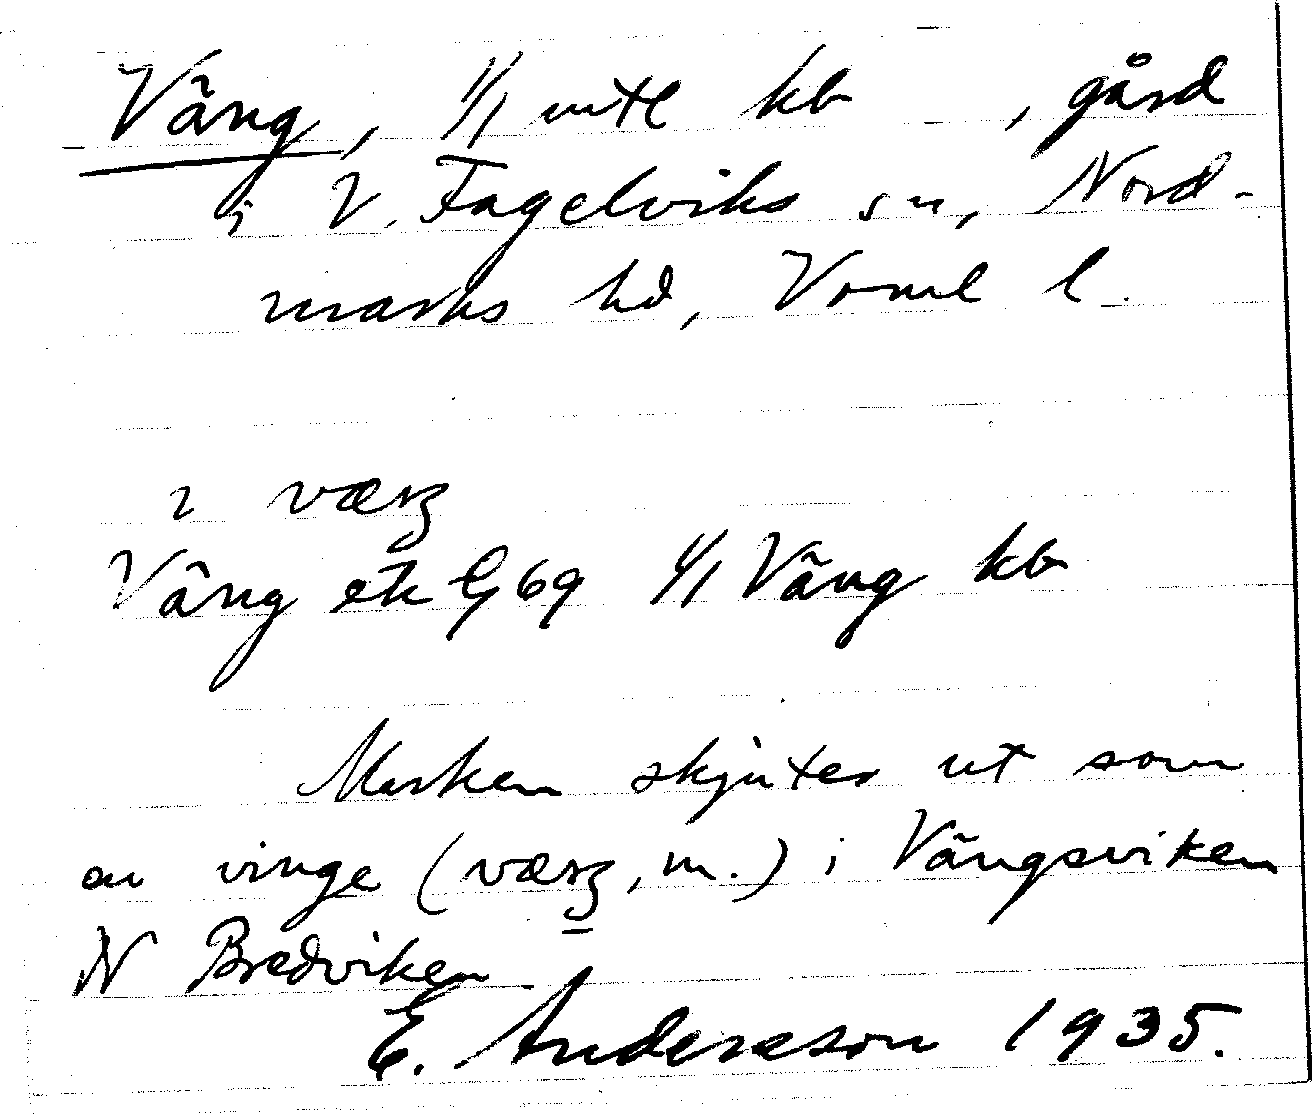 Väng, 1/1 mtl kb , gård
i V. Fågelviks sn, Nord-
marks hd, Verml l.
i væŋ
Väng ek G 69 1/1 Väng kb
Marken skjuter ut som
en vinge (væŋ, m.) i Vängsviken
N Bredviken
E. Andersson 1935.